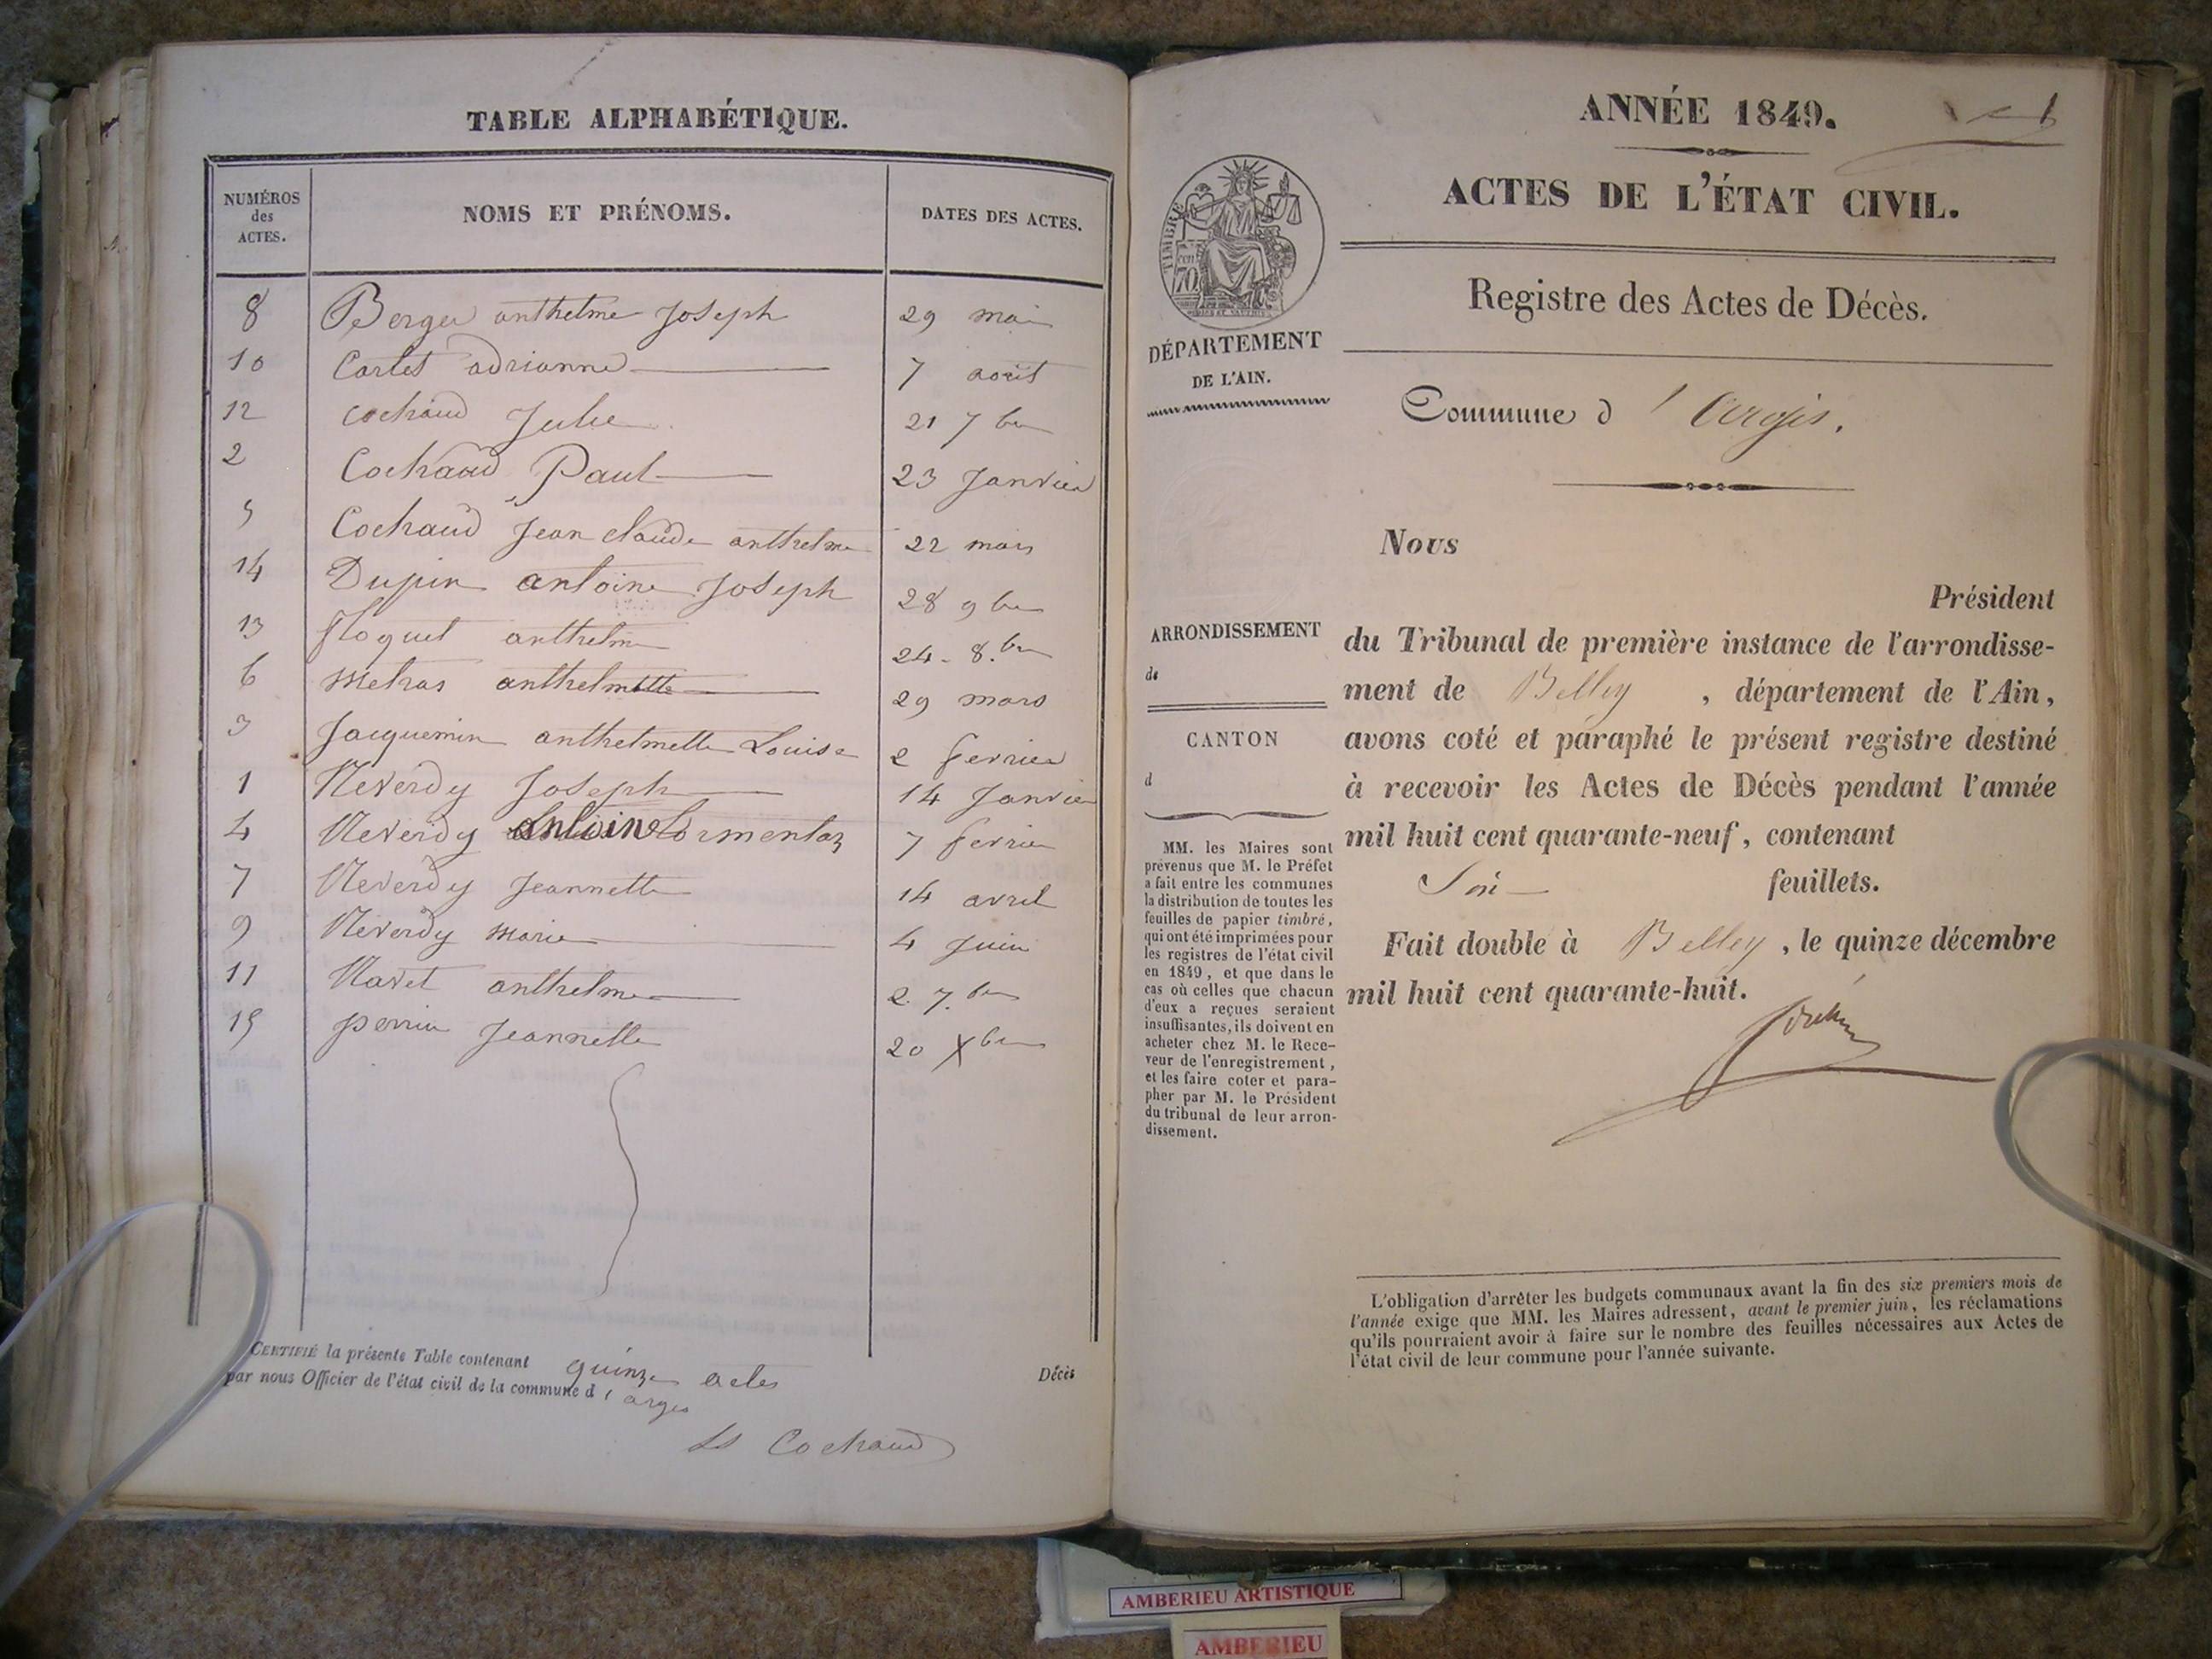 TABLE ALPHABÉTIQUE.
NUMÉROS des ACTES. NOMS ET PRÉNOMS. DATES DES ACTES.
8 Berger anthelme Joseph 29 mai
10 Carlet adrianne 7 août
12 cochaud Julie 21 7bre
2 Cochaud Paul 23 Janvier
5 Cochaud Jean claude anthelme 22 mars
14 Dupin antoine Joseph 28 9bre
13 floquet anthelme 24 8.bre
6 Metras anthelmette 29 mars
3 Jacquemin anthelmette Louise 2 fevrier
1 Neverdy Joseph 14 Janvier
4 Neverdy antoine 7 fevrier
7 Neverdy Jeannette 14 avril
9 Neverdy marie 4 Juin
11 Navet anthelme 2 7.bre
15 perrin Jeannette 20 Xbre
CERTIFIÉ la présente Table contenant quinze actes
par nous Officier de l'état civil de la commune d'argis
Décès
Ls Cochaud
ANNÉE 1849.
ACTES DE L'ÉTAT CIVIL.
TIMBRE
70
DÉPARTEMENT
DE L'AIN.
Registre des Actes de Décès.
Commune d'Argis.
Nous
Président
du Tribunal de première instance de l'arrondisse-
ment de Belley, département de l'Ain,
avons coté et paraphé le présent registre destiné
à recevoir les Actes de Décès pendant l'année
mil huit cent quarante-neuf, contenant
Six feuillets.
Fait double à Belley, le quinze décembre
mil huit cent quarante-huit.
ARRONDISSEMENT
de
CANTON
d
MM. les Maires sont
prévenus que M. le Préfet
a fait entre les communes
la distribution de toutes les
feuilles de papier timbré,
qui ont été imprimées pour
les registres de l'état civil
en 1849, et que dans le
cas où celles que chacun
d'eux a reçues seraient
insuffisantes, ils doivent en
acheter chez M. le Rece-
veur de l'enregistrement,
et les faire coter et para-
pher par M. le Président
du tribunal de leur arron-
dissement.
L'obligation d'arrêter les budgets communaux avant la fin des six premiers mois de
l'année exige que MM. les Maires adressent, avant le premier juin, les réclamations
qu'ils pourraient avoir à faire sur le nombre des feuilles nécessaires aux Actes de
l'état civil de leur commune pour l'année suivante.
AMBERIEU ARTISTIQUE
AMBERIEU